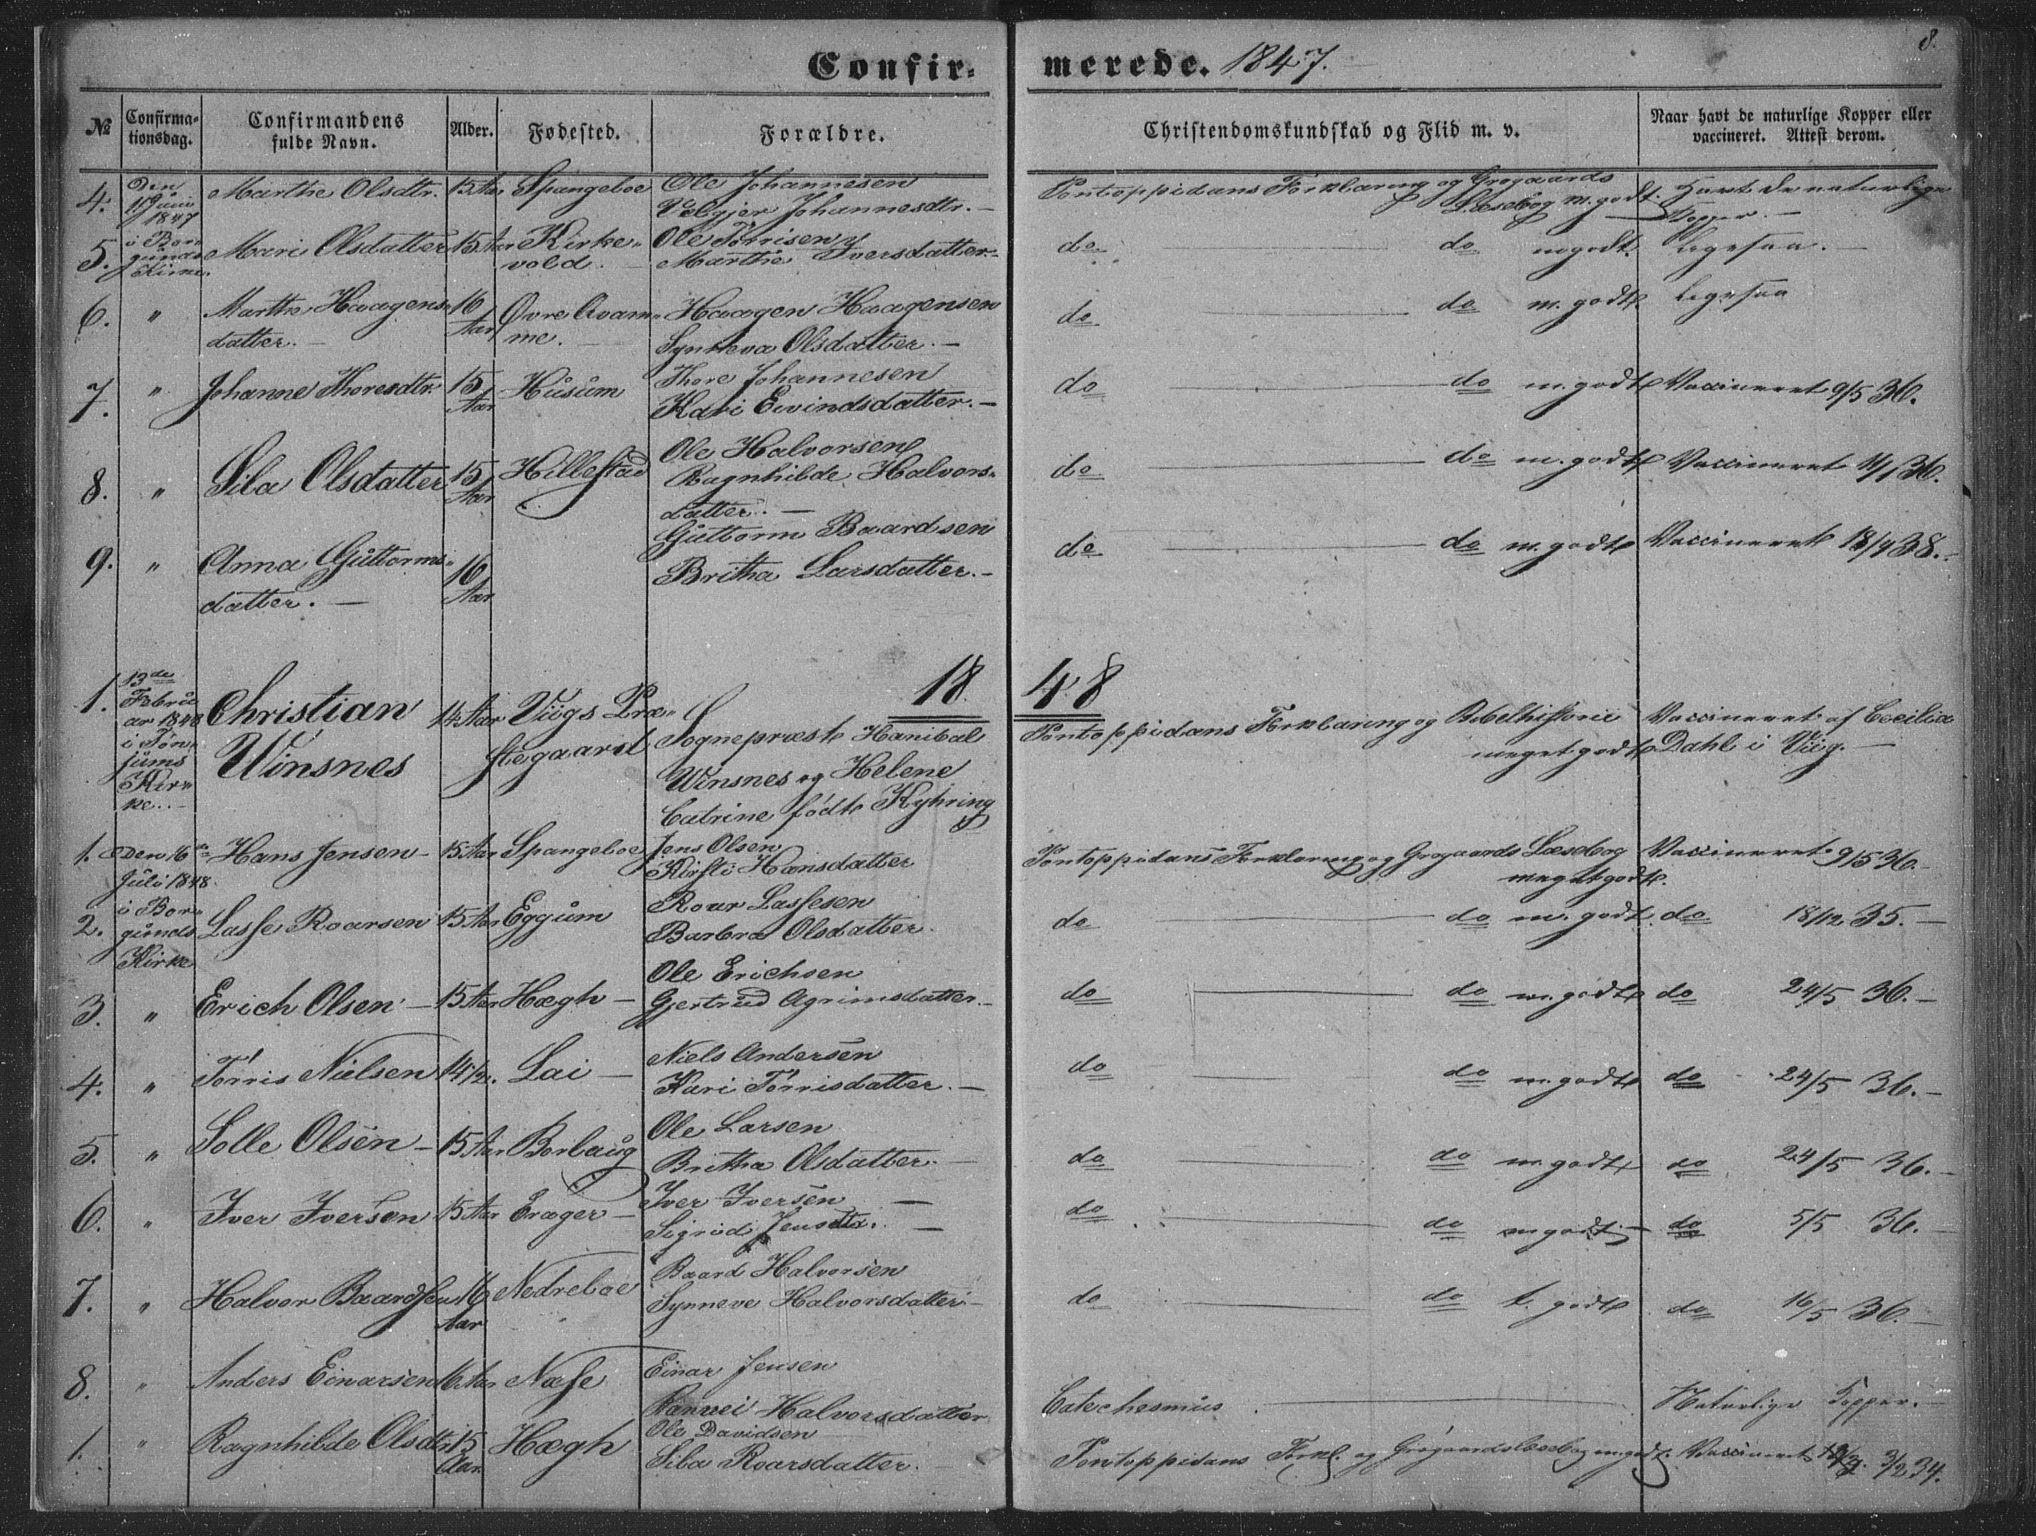 8.
Confirmerede. 1847.
№ Confirmationsdag. Confirmandens fulde Navn. Alder. Fødested. Forældre. Christendomskundskab og Flid m. v. Naar havt de naturlige Kopper eller vaccineret. Attest derom.
4. Den Juni 1847 Marthe Olsdtr. 15 Aar Spangeloe Ole Johannesen Johannesdtr. – Pontoppidans Forklaring og Grøgaards Læsebog m. godt. Havt de naturlige Kopper. –
5. i Borgunds Kirke. Mari Olsdatter 15 Aar Kirkevold. Ole Tørrisen Marthe Iversdatter. – do do m godt. Ligesaa. –
6. " Marthe Haagensdatter. – 16 Aar Øvre Qvamme. Haagen Haagensen Synneva Olsdatter. – do do m. godt Ligesaa
7. " Johanne Thoresdtr. 15 Aar Husum Thore Johannesen Kari Eivindsdatter. – do do m. godt Vaccineret 9/5 36.
8. " Sila Olsdatter 15 Aar Hillestad Ole Halvorsen Ragnhilde Halvorsdatter. – do do m. godt Vaccineret 11/1 36.
9. " Anna Guttormsdatter. – 16 Aar Guttorm Baardsen Britha Larsdatter. – do do m. godt Vaccineret 38. –
1848
1. 13de Februar 1848 i Tønjums Kirke. – Christian Winsnes 14 Aar Viigs Præstegaard Sognepræst Hanibal Winsnes og Helene Catrine født Hyhring Pontoppidans Forklaring og Bibelhistorie meget godt Vaccineret af Cecilia Dahl i Viig. –
1. Den 16de Juli 1848. Hans Jensen – 15 Aar Spangeloe Jens Olsen Kirsti Hansdatter Pontoppidans Forklaring og Grøgaards Læsebog meget godt. Vaccineret 9/5 36. –
2. i Borgunds Kirke Lasse Roarsen 15 Aar Eggum Roar Lassesen Barbra Olsdatter. do do m. godt. do 18/12 35. –
3. " Erich Olsen – 15 Aar Hægh – Ole Erichsen Gjertrud Agrimsdatter. – do do m. godt do 24/5 36. –
4. " Tørris Nielsen 14 1/2. Lai – Niels Andersen Kari Tørrisdatter. – do do m. godt do 24/5 36. –
5. " Solle Olsen – 15 Aar Borlaug Ole Larsen Britha Olsdatter. – do do m. godt do 24/5 36. –
6. " Iver Iversen 15 Aar Eræger – Iver Iversen – Sigrid Jensdtr. – do do m godt – do 5/5 36. –
7. " Halvor Baardsen 16 Aar Nedreboe Baard Halvorsen Synneve Halvorsdatter – do do t. godt do 16/5 36. –
8. " Anders Einarsen 16 Aar Næse Einar Jensen Ranvei Halvorsdatter Catechesmus Naturlige Kopper. –
1. " Ragnhilde Olsdtr. 15 Aar. Hægh Ole Davidsen Siba Roarsdatter. – Pontoppidans Forkl. og Grøgaards Læsebog m godt. Vaccineret 3/2 34.